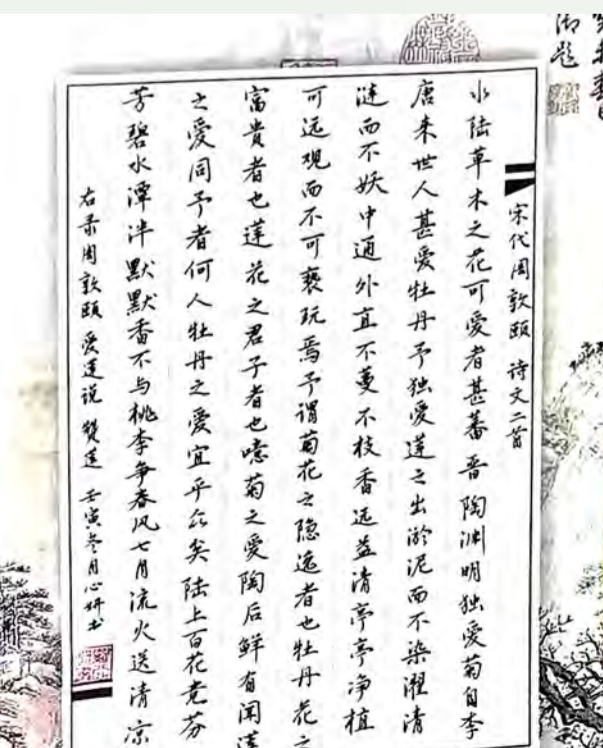 宋代周敦颐 诗文二首
水陆草木之花可爱者甚蕃晋陶渊明独爱菊自李
唐来世人甚爱牡丹予独爱莲之出淤泥而不染濯清
涟而不妖中通外直不蔓不枝香远益清亭亭净植
可远观而不可亵玩焉予谓菊花之隐逸者也牡丹花之
富贵者也莲花之君子者也噫菊之爱陶后鲜有闻莲
之爱同予者何人牡丹之爱宜乎众矣陆上百花竞芬
芳碧水潭泮默默香不与桃李争春风七月流火送清凉
右录周敦颐爱莲说 赞莲 壬寅冬月心妍书
御题